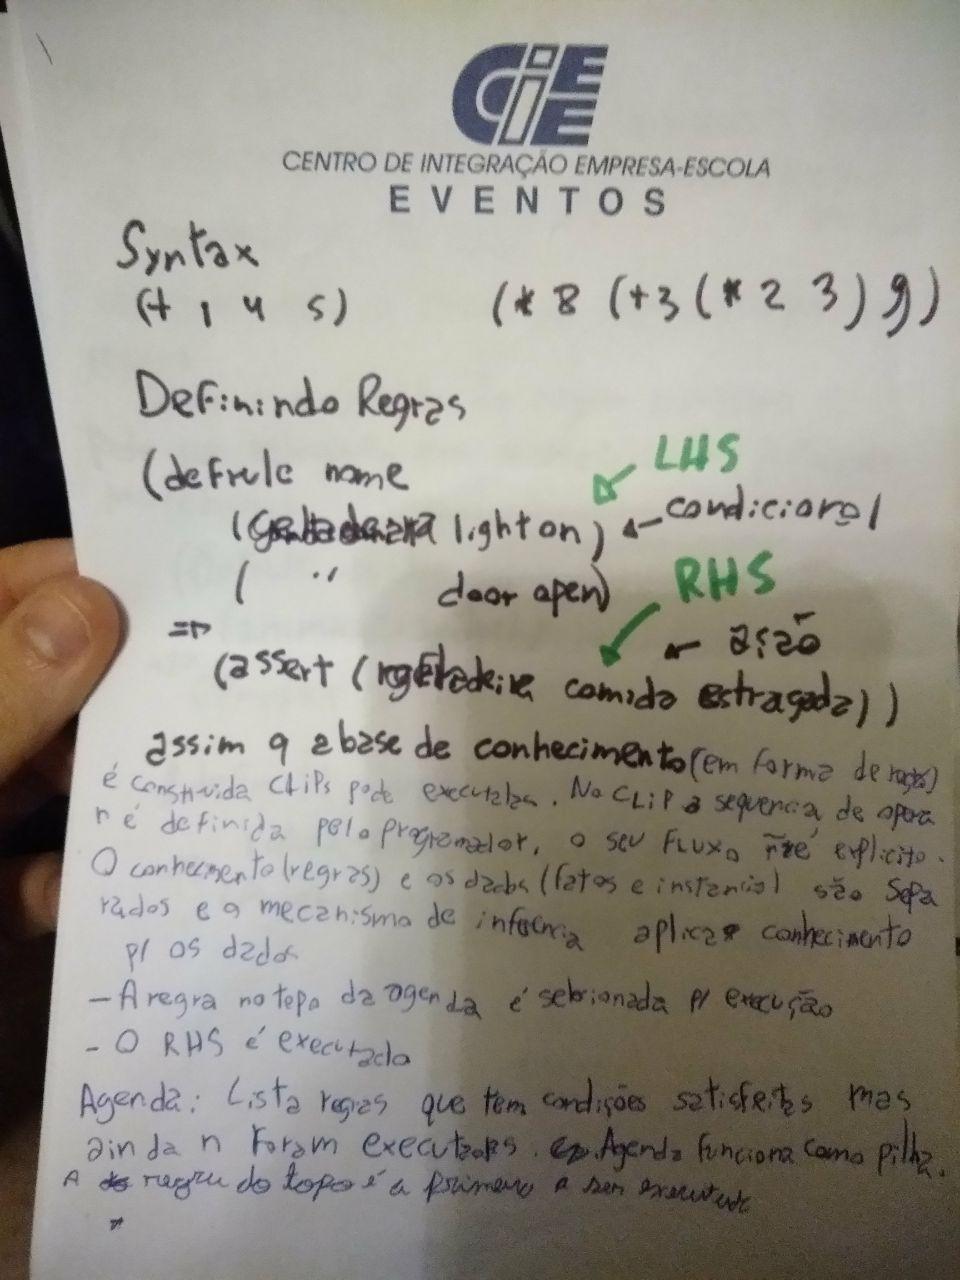 CIEE
CENTRO DE INTEGRAÇÃO EMPRESA-ESCOLA
EVENTOS
Syntax
(+ 1 4 5) (* 8 (+3 (* 2 3) 9)
Definindo Regras
LHS
(defrule name
(geladeira light on) ← condicional
( " door open)
RHS
=> ← ação
(assert (geladeira comida estragada))
assim q a base de conhecimento (em forma de)
é construida CLIPs pode executalas. No CLIP a sequencia de opera
n é definida pelo programador, o seu Fluxo ñ é explicito.
O conhecimento (regras) e os dados (fatos e instancia) são sepa
rados e o mecanismo de inferencia aplica conhecimento
p/ os dados
- A regra no topo da agenda é selecionada p/ execução
- O RHS é executado
Agenda: Lista regras que tem condições satisfeitas mas
ainda n foram executadas. Agenda funciona como pilha.
A regra do topo é a primeira a ser executada